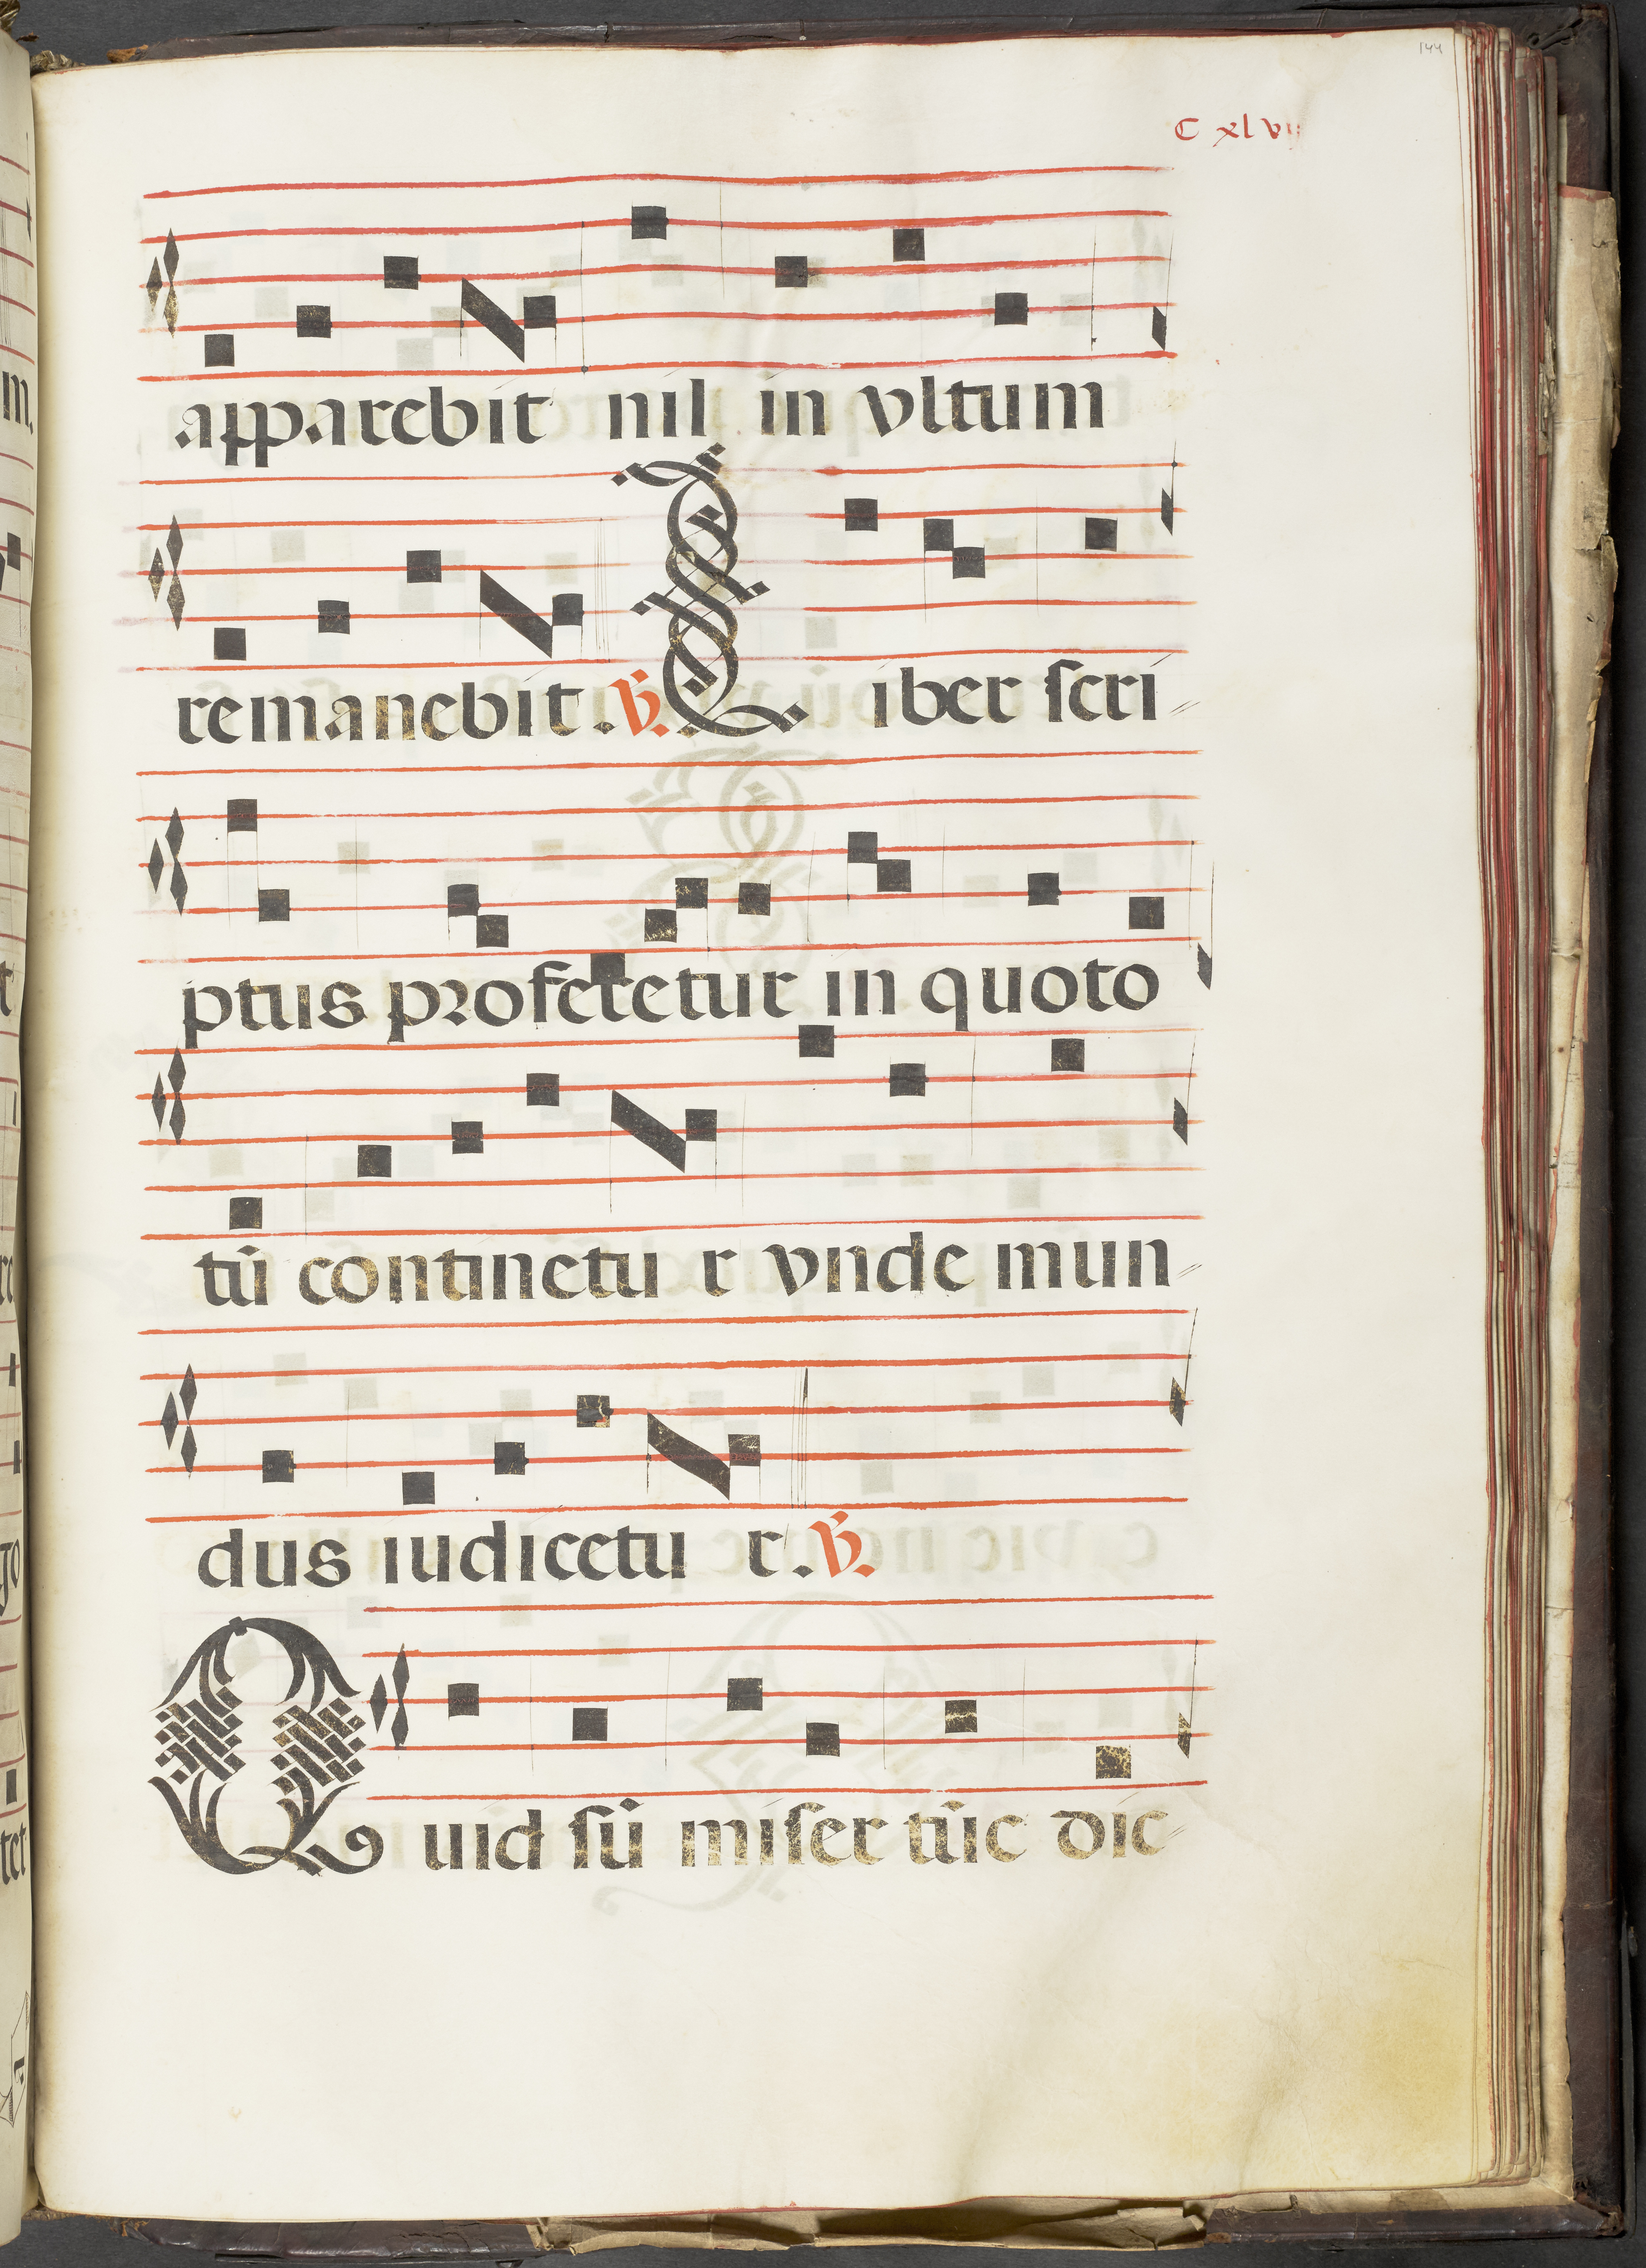 144
C xlvij
apparebit nil in vltum
remanebit. V. Liber scri
ptus proferetur in quoto
tū continetu r vnde mun
dus iudicetu r. V.
Quid sū miser tūc dic